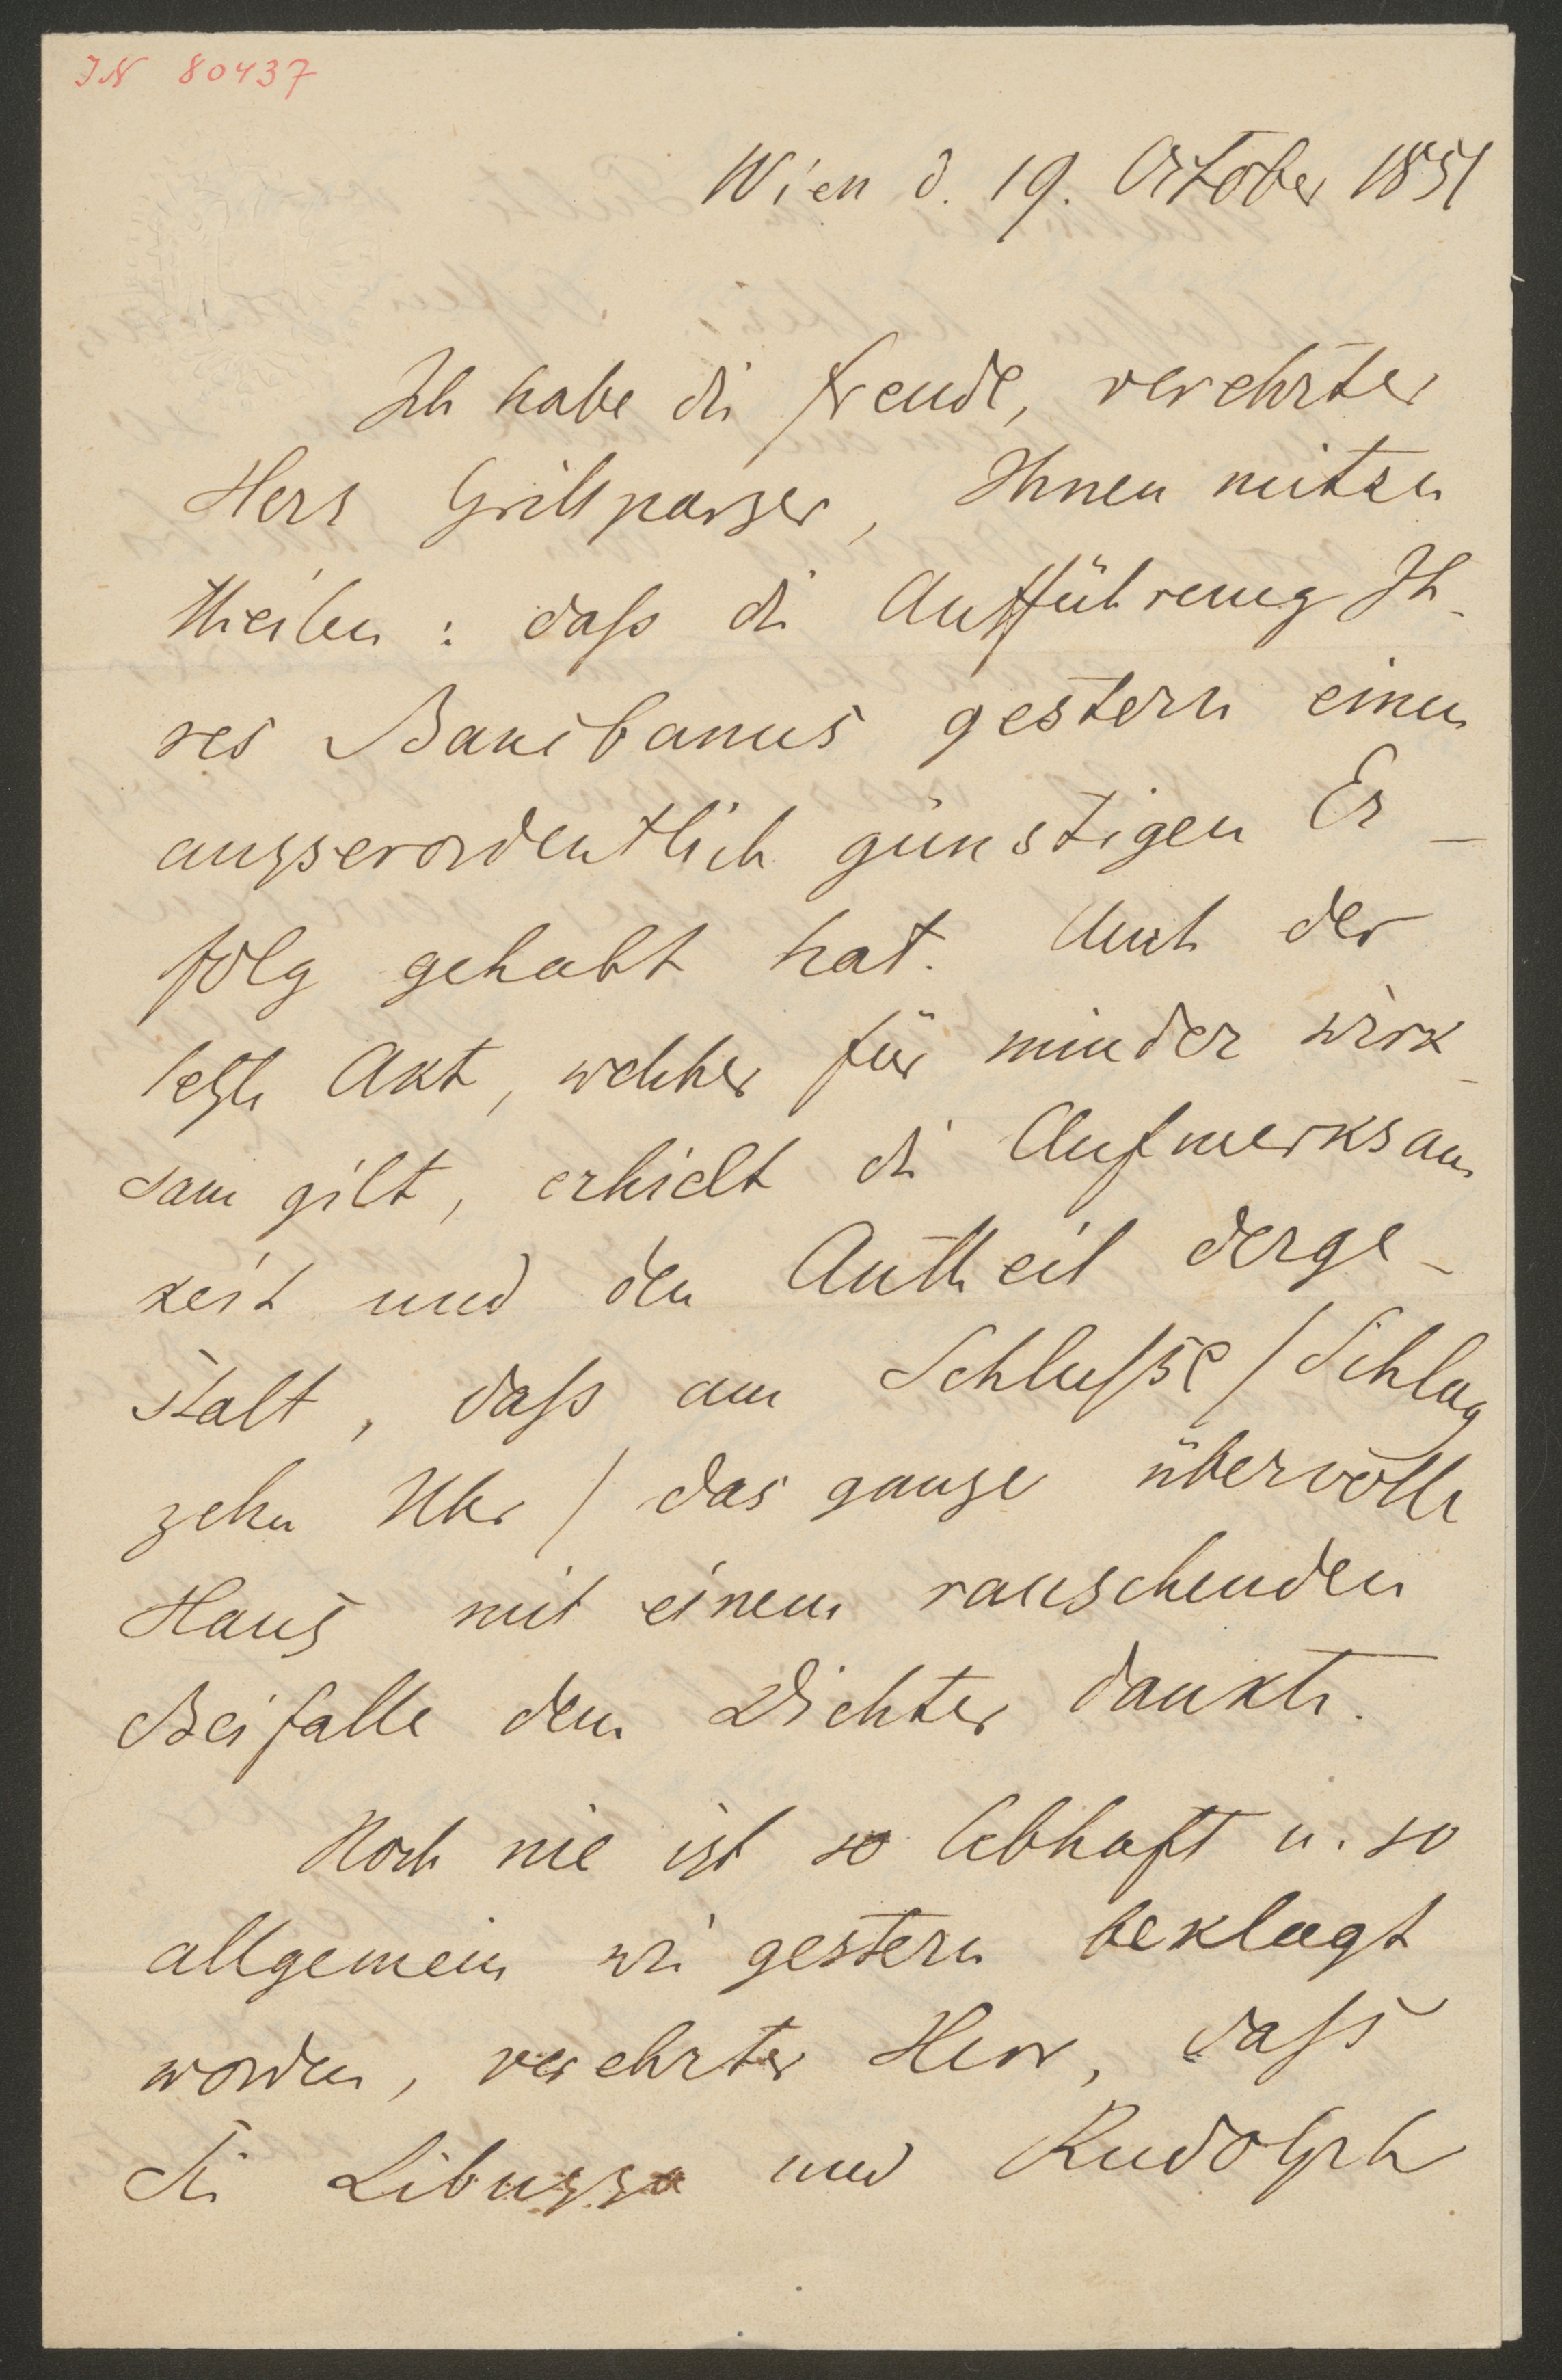 IN 80437
Wien d. 19. October 1851
Ich habe die Freude, verehrter
Herr Grillparzer, Ihnen mitzu
theilen: daß die Aufführung Ih-
res Bancbanus gestern einen
ausserordentlich günstigen Er-
folg gehabt hat. Auch der
letzte Akt, welcher für minder wirk-
sam gilt, erhielt die Aufmerksam
keit und den Antheil derge-
stalt, daß am Schlusse / Schlag
zehn Uhr / das ganze übervolle
Haus mit einem rauschenden
Beifalle dem Dichter dankte.
Noch nie ist so lebhaft u. so
allgemein wie gestern beklagt
worden, verehrter Herr, dass
Sie Libussa und Rudolph